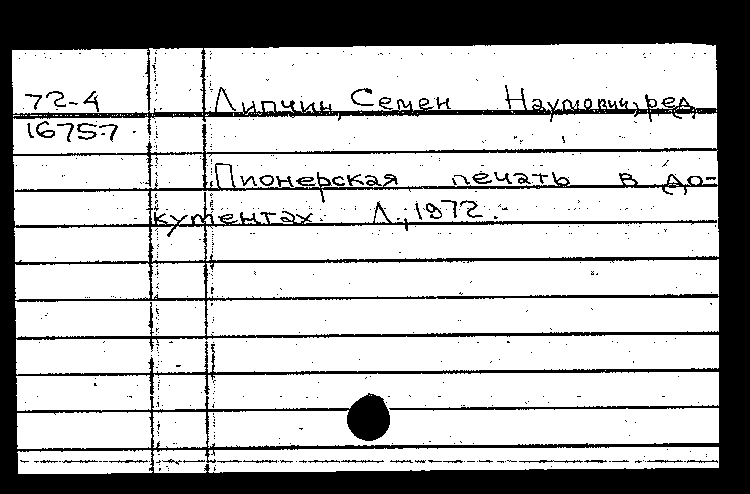 72-4 Липчин, Семен Наумович, ред.
16757
Пионерская печать в до-
кументах. Л., 1972.